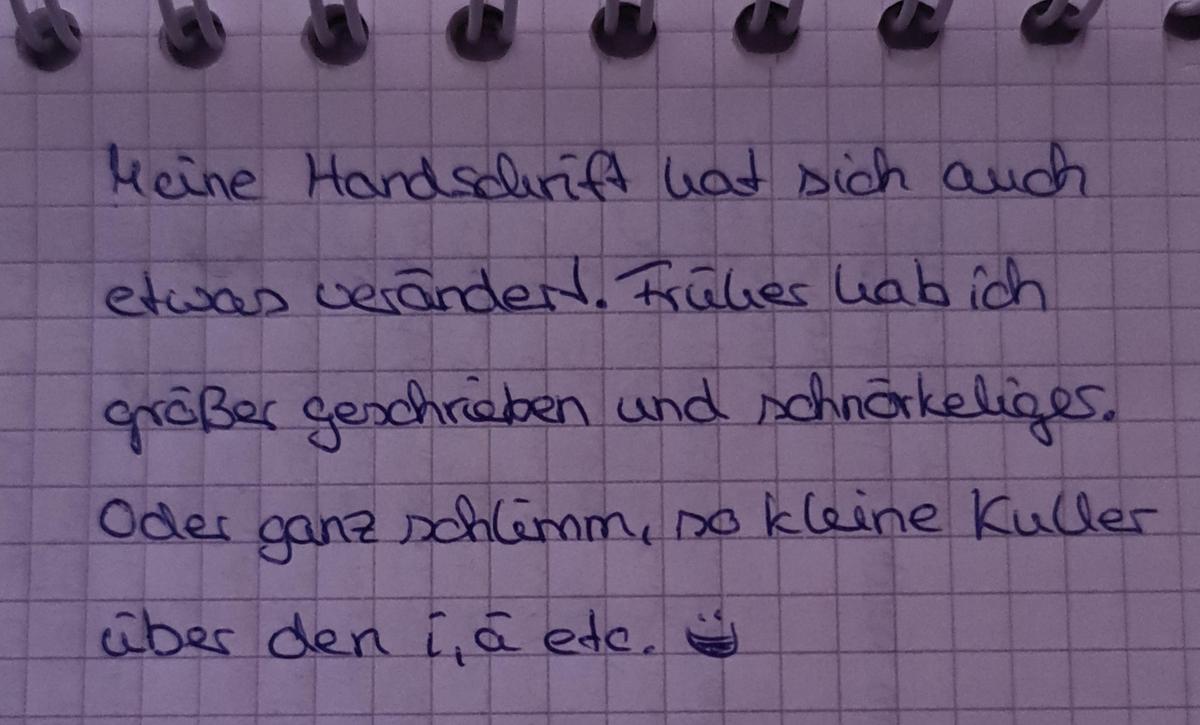 Meine Handschrift hat sich auch
etwas verändert. Früher hab ich
größer geschrieben und schnörkeliger.
Oder ganz schlimm, so kleine Kuller
über den i, ä etc. 😀